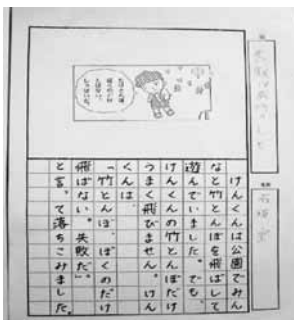 けんくんは公園でみん
なと竹とんぼを飛ばして
遊んでいました。でも、
けんくんの竹とんぼだけ
うまく飛びません。けん
くんは、
「竹とんぼ、ぼくのだけ
飛ばない。失敗だ。」
と言って落ちこみました。